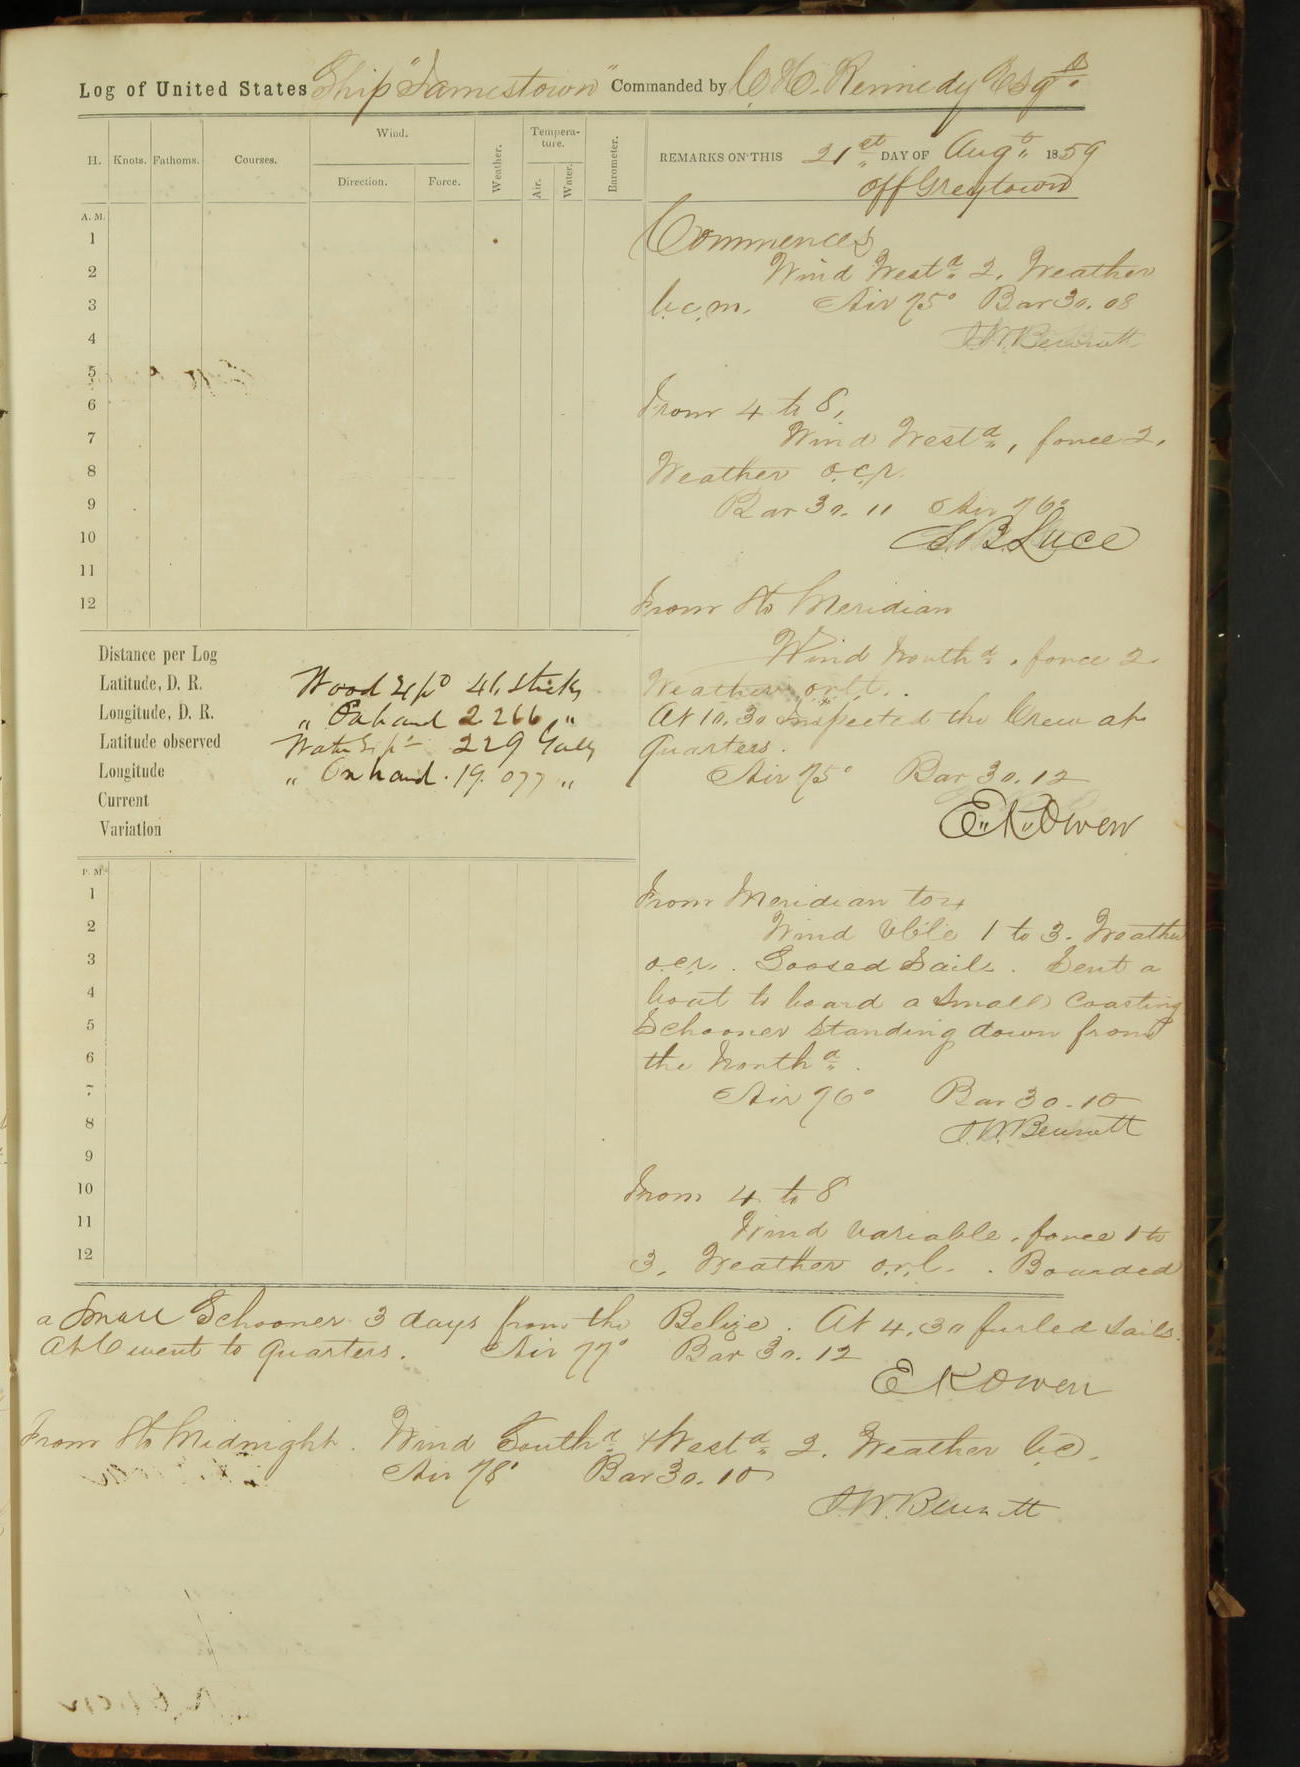 Log of United States Ship "Jamestown" Commanded by C. H. Kennedy Esqr.
H. Knots. Fathoms. Courses. Wind. Direction. Force. Weather. Tempera-ture. Air. Water. Barometer.
REMARKS ON THIS 21st DAY OF Augt 1859
off Greytown
A. M.
1
2
3
4
5
6
7
8
9
10
11
12
Commences
Wind Westd 2. Weather
b.c.m. Air 75° Bar 30.08
J. W. Bennett
From 4 to 8,
Wind Westd, force 2,
Weather o.c.r.
Bar 30.11 Air 76°
S. B. Luce
From 8 to Meridian
Wind Northd, force 2.
Weather o.r.l.t.
At 10.30 Inspected the Crew at
quarters.
Air 75° Bar 30.12
E. K. Owen
Distance per Log
Latitude, D. R.
Longitude, D. R.
Latitude observed
Longitude
Current
Variation
Wood Expd 41 Sticks
" On hand 2266 "
Water Expd 229 Galls
" On hand. 19.077 "
P. M.
1
2
3
4
5
6
7
8
9
10
11
12
From Meridian to 4
Wind Vble 1 to 3. Weather
o.c.r. Loosed Sails. Sent a
boat to board a Small Coasting
Schooner Standing down from
the Northd.
Air 76° Bar 30.10
J. W. Bennett
From 4 to 8
Wind Variable, force 1 to
3, Weather o.r.l. Boarded
a Small Schooner 3 days from the Belize. At 4.30 furled Sails.
At 6 went to Quarters. Air 77° Bar 30.12
E K Owen
From 8 to Midnight. Wind Southd & Westd 2. Weather b.c.
Air 78° Bar 30.10
J. W. Bennett